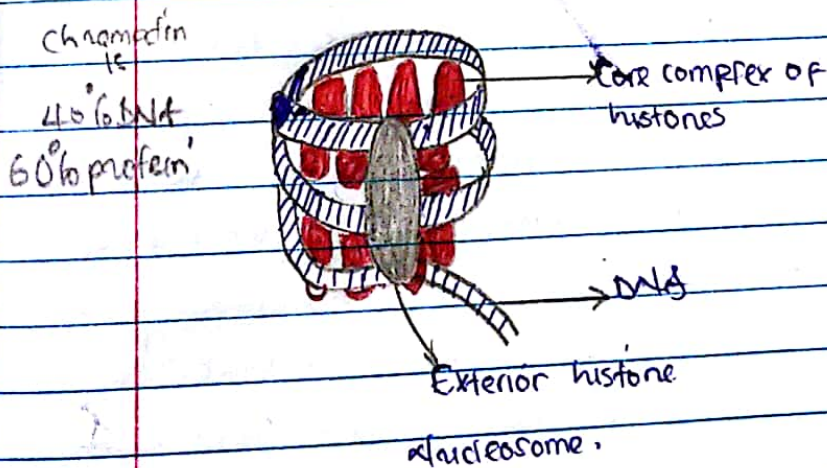 Chromatin
is
40% DNA
60% protein
Core complex of
histones
DNA
Exterior histone
Nucleosome.